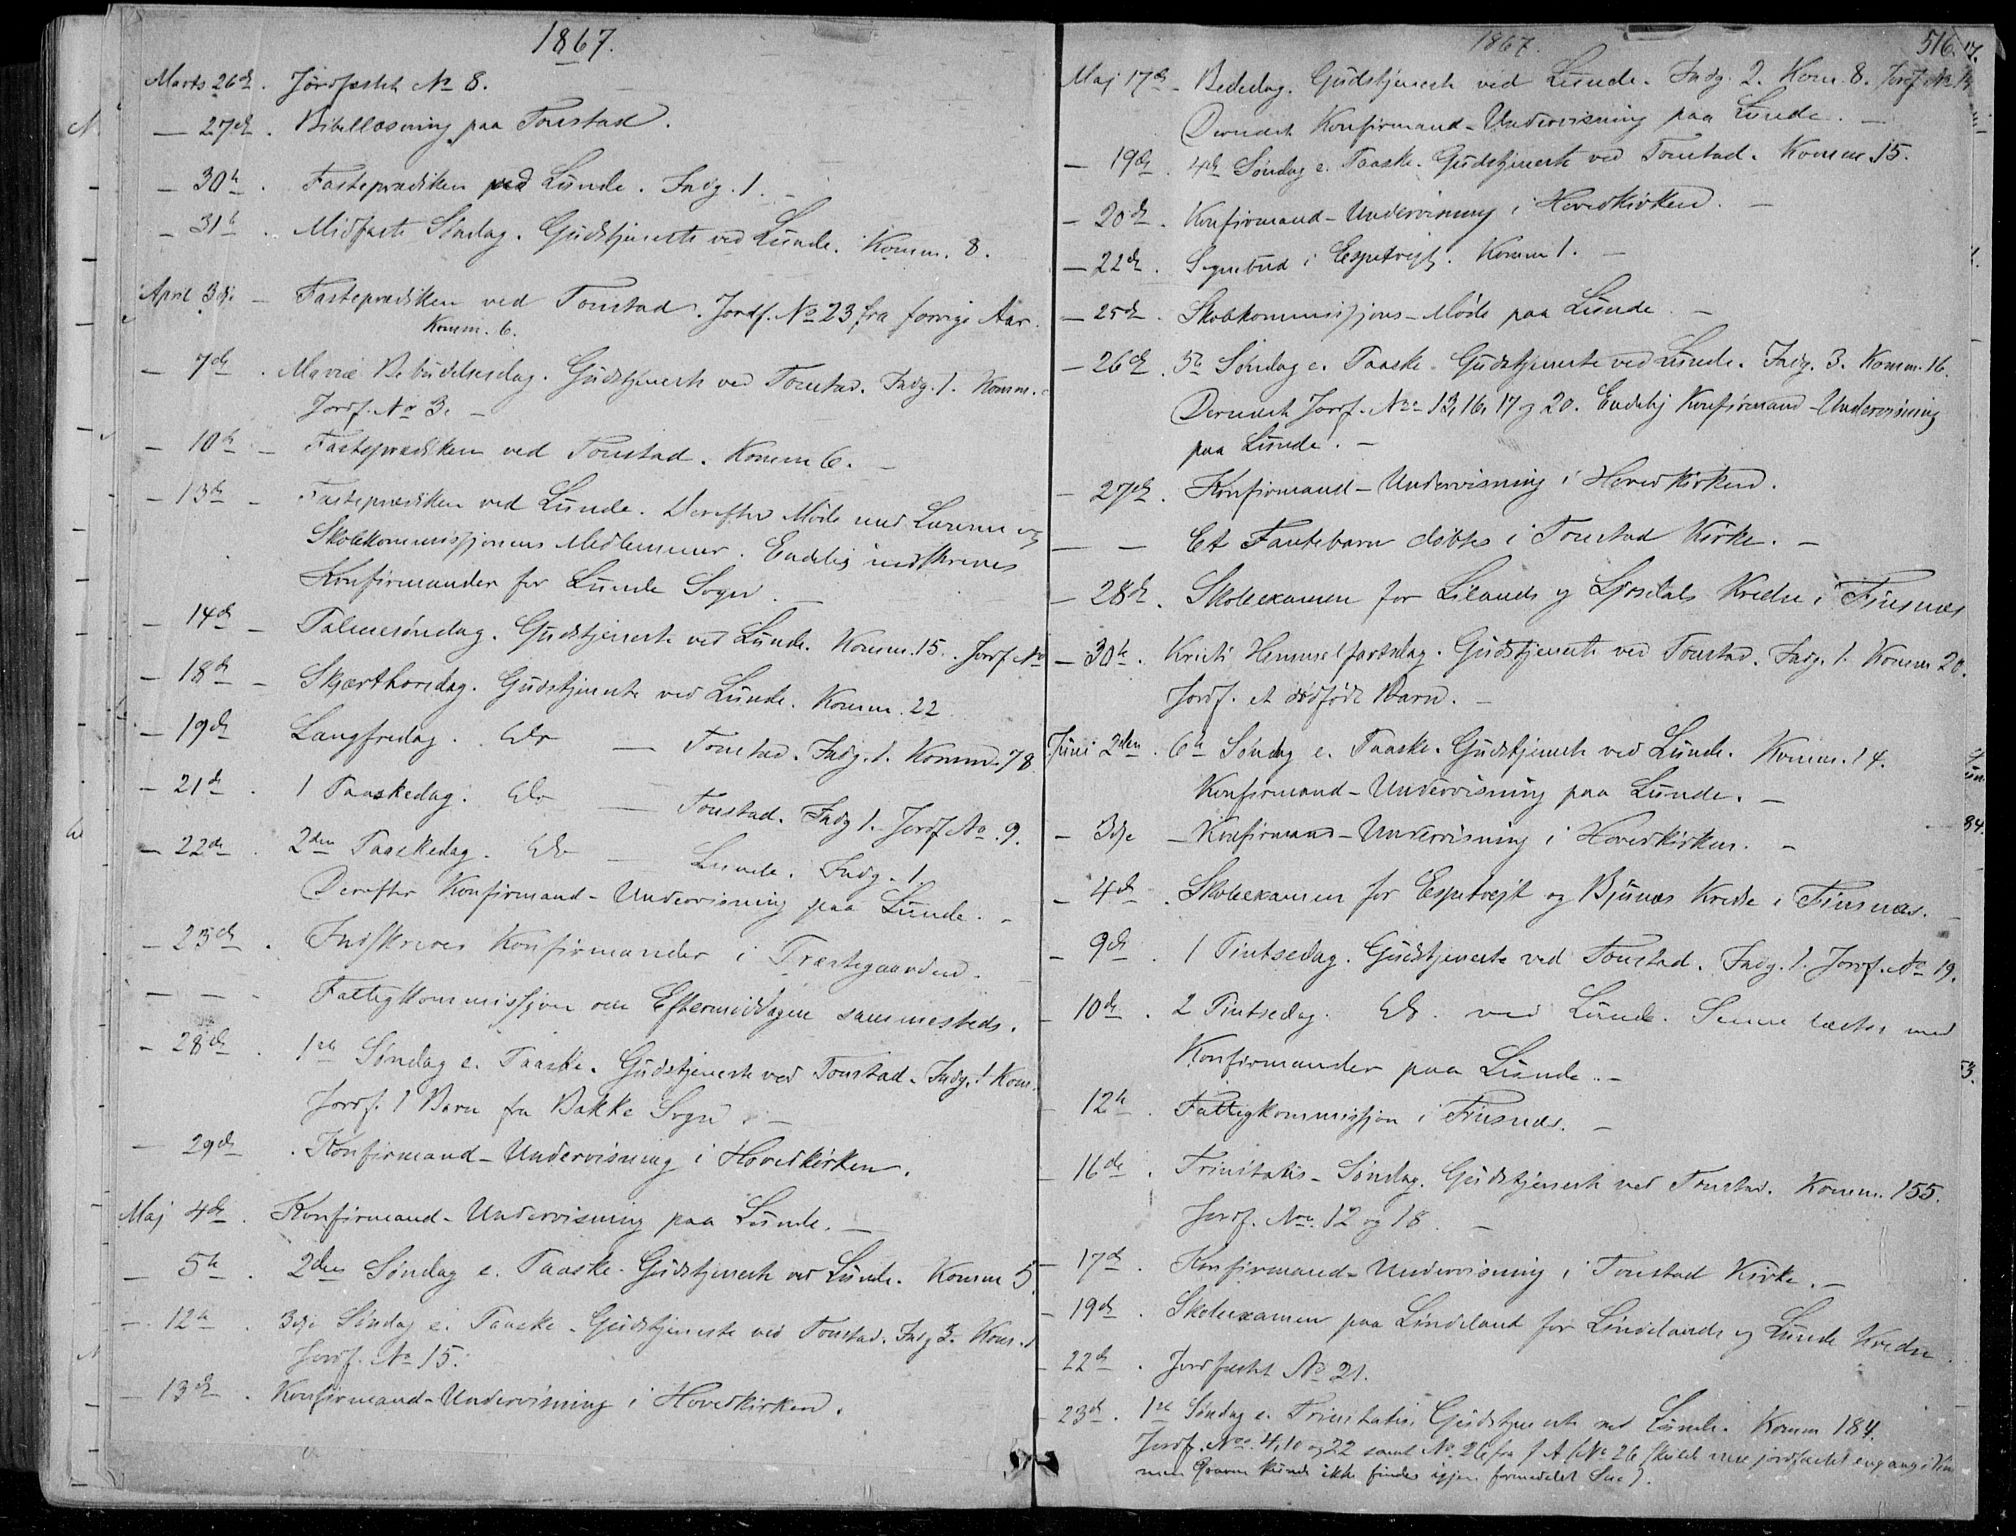 1867.
Marts 26de. Jordfæstet No 8.
— 27de. Bibellæsning paa Tonstad.
— 30te. Fasteprædiken ved Lunde. Indg. 1. —
— 31te. Midfaste Søndag. Gudstjeneste ved Lunde. Komm. 8.
April 3dje — Fasteprædiken ved Tonstad. Jordf. No 23 fra forrige Aar.
Komm. 6.
— 7de. Mariæ Bebudelsesdag. Gudstjeneste ved Tonstad. Indg. 1. Komm.
Jordf. No 3. —
— 10de — Fasteprædiken ved Tonstad. Komm 6. —
— 13de — Fasteprædiken ved Lunde. Derefter Møde med Lærerne og
Skolekommissjonens Medlemmer. Endelig indskreves
Konfirmander for Lunde Sogn. —
— 14de — Palmesøndag. Gudstjeneste ved Lunde. Komm. 15. Jordf No
— 18de — Skjærthorsdag. Gudstjeneste ved Lunde. Komm. 22
— 19de Langfredag. Do — Tonstad. Indg. 1. Komm. 78
— 21de. 1 Paaskedag. Do — Tonstad. Indg 1. Jordf No. 9.
— 22de. 2den Paaskedag. Do — Lunde. Indg. 1.
Derefter Konfirmand-Undervisning paa Lunde. —
— 23de. Indskreves Konfirmander i Præstegaarden. —
— — — Fattigkommissjon om Eftermiddagen sammesteds.
— 28de. 1ste Søndag e. Paaske. Gudstjeneste ved Tonstad. Indg. 1 Kom.
Jordf. 1 Barn fra Bakke Sogn. —
— 29de. Konfirmand-Undervisning i Hovedkirken.
Maj 4de. Konfirmand-Undervisning paa Lunde. —
— 5te. 2den Søndag e. Paaske. Gudstjeneste ved Lunde. Komm 5.
— 12te. 3dje Søndag e. Paaske. Gudstjeneste ved Tonstad. Indg 3. Kom. 1
Jordf. No 15.
— 13de. Konfirmand-Undervisning i Hovedkirken.
1867. 516.
Maj 17de — Bededag. Gudstjeneste ved Lunde. Indg. 2. Kom. 8. Jordf No
Derudet Konfirmand-Undervisning paa Lunde. —
— 19de. 4de Søndag e. Paaske. Gudstjeneste ved Tonstad. Komm. 15.
— 20de. Konfirmand-Undervisning i Hovedkirken. —
— 22de. Sognebud i Espetvejt. Komm 1. —
— 25de. Skolekommissjons-Møde paa Lunde. —
— 26de. 5te Søndag e. Paaske. Gudstjeneste ved Lunde. Indg. 3. Komm. 16.
Derudet Jordf. Noe 13, 16, 17 og 20. Endelig Konfirmand-Undervisning
paa Lunde. —
— 27de. Konfirmand-Undervisning i Hovedkirken.
— — Et Fantebarn døbtes i Tonstad Kirke. —
— 28de. Skoleexamen for Lilands og Ljosdals Kredse i Finsnæs
— 30te. Kristi Himmelfartsdag. Gudstjeneste ved Tonstad. Indg. 1. Komm 20.
Jordf. et dødfødt Barn. —
Juni 2den. 6te Søndag e. Paaske. Gudstjeneste ved Lunde. Komm. 14.
Konfirmand-Undervisning paa Lunde. —
— 3dje — Konfirmand-Undervisning i Hovedkirken. —
— 4de. Skoleexamen for Espetvejt og Bjunæs Kredse i Finsnæs. —
— 9de. 1 Pintsedag. Gudstjeneste ved Tonstad. Indg. 1. Jordf. No 19.
— 10de. 2 Pintsedag. Do. ved Lunde. Senere læstes med
Konfirmander paa Lunde. —
— 12te. Fattigkommissjon i Finsnæs. —
— 16de. Trinitatis-Søndag. Gudstjeneste ved Tonstad. Komm. 155.
Jordf. Noe. 12 og 18. —
— 17de. Konfirmand-Undervisning i Tonstad Kirke. —
— 19de. Skoleexamen paa Lindeland for Lindelands og Lunde Kredse.
— 22de. Jordfæstet No 21.
— 23de. 1ste Søndag e. Trinitatis. Gudstjeneste ved Lunde. Komm 184.
Jordf. Noe. 4, 10 og 22 samt No. 26 fra f. A. (No 26 skulde være jordfæstet engang i
men Graven kunde ikke findes igjen formedelst Sne).